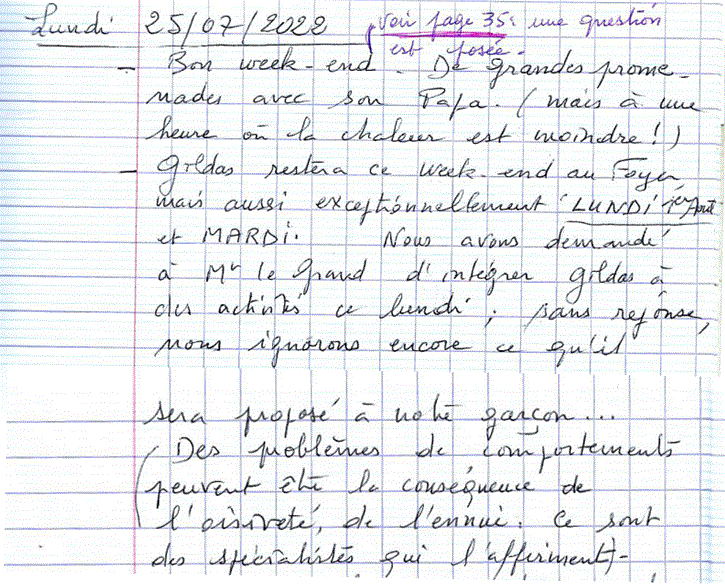 Lundi 25/07/2022 voir page 35 : une question
est posée.
– Bon week-end. De grandes prome-
nades avec son Papa. (mais à une
heure où la chaleur est moindre !)
– Gildas restera ce week-end au Foyer,
mais aussi exceptionnellement LUNDI 1er Août
et MARDI. Nous avons demandé
à Mr le Grand d'intégrer Gildas à
des activités ce lundi ; sans réponse,
nous ignorons encore ce qu'il
sera proposé à notre garçon...
(Des problèmes de comportements
peuvent être la conséquence de
l'oisiveté, de l'ennui. Ce sont
des spécialistes qui l'affirment)-